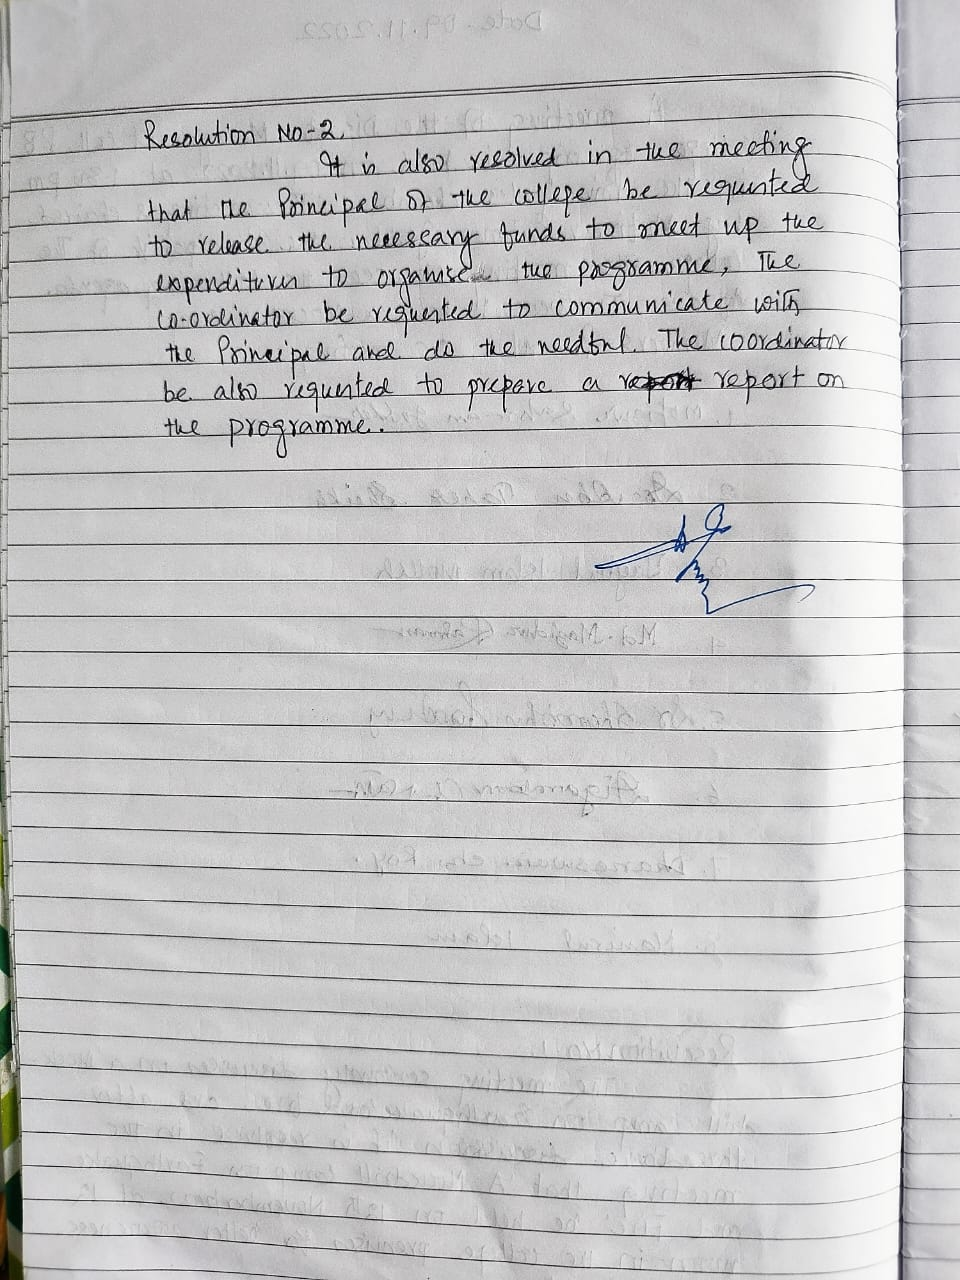 Resolution No-2.
It is also resolved in the meeting
that the Principal of the college be requested
to release the necessary funds to meet up the
expenditures to organise the programme, The
co-ordinator be requested to communicate with
the Principal and do the needful. The coordinator
be also requested to prepare a report report on
the programme.